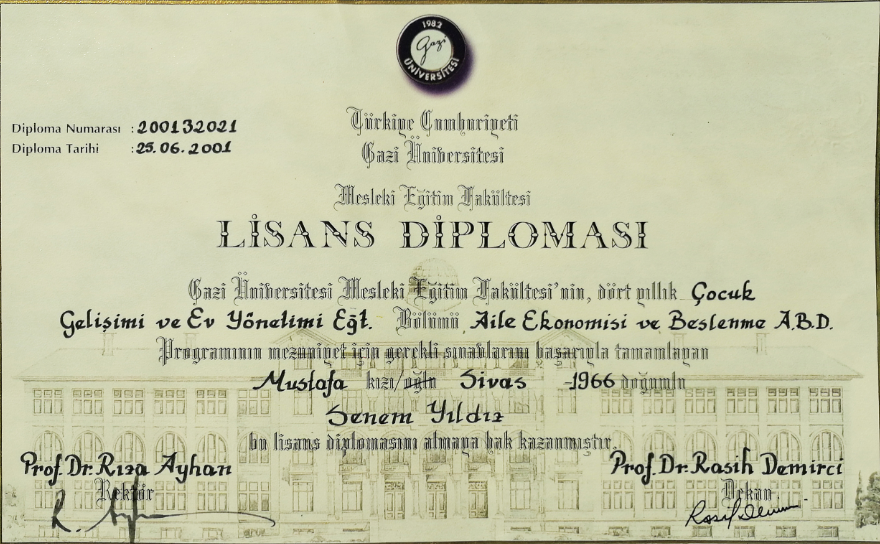 1982
Gazi
ÜNİVERSİTESİ
Diploma Numarası : 200132021
Diploma Tarihi : 25.06.2001
Türkiye Cumhuriyeti
Gazi Üniversitesi
Mesleki Eğitim Fakültesi
LİSANS DİPLOMASI
Gazi Üniversitesi Mesleki Eğitim Fakültesi'nin, dört yıllık Çocuk
Gelişimi ve Ev Yönetimi Eğt. Bölümü Aile Ekonomisi ve Beslenme A.B.D.
Programının mezuniyet için gerekli sınavlarını başarıyla tamamlayan
Mustafa kızı/oğlu Sivas -1966 doğumlu
Senem Yıldız
bu lisans diplomasını almaya hak kazanmıştır.
Prof.Dr.Rıza Ayhan
Rektör
R. Ayhan
Prof.Dr.Rasih Demirci
Dekan